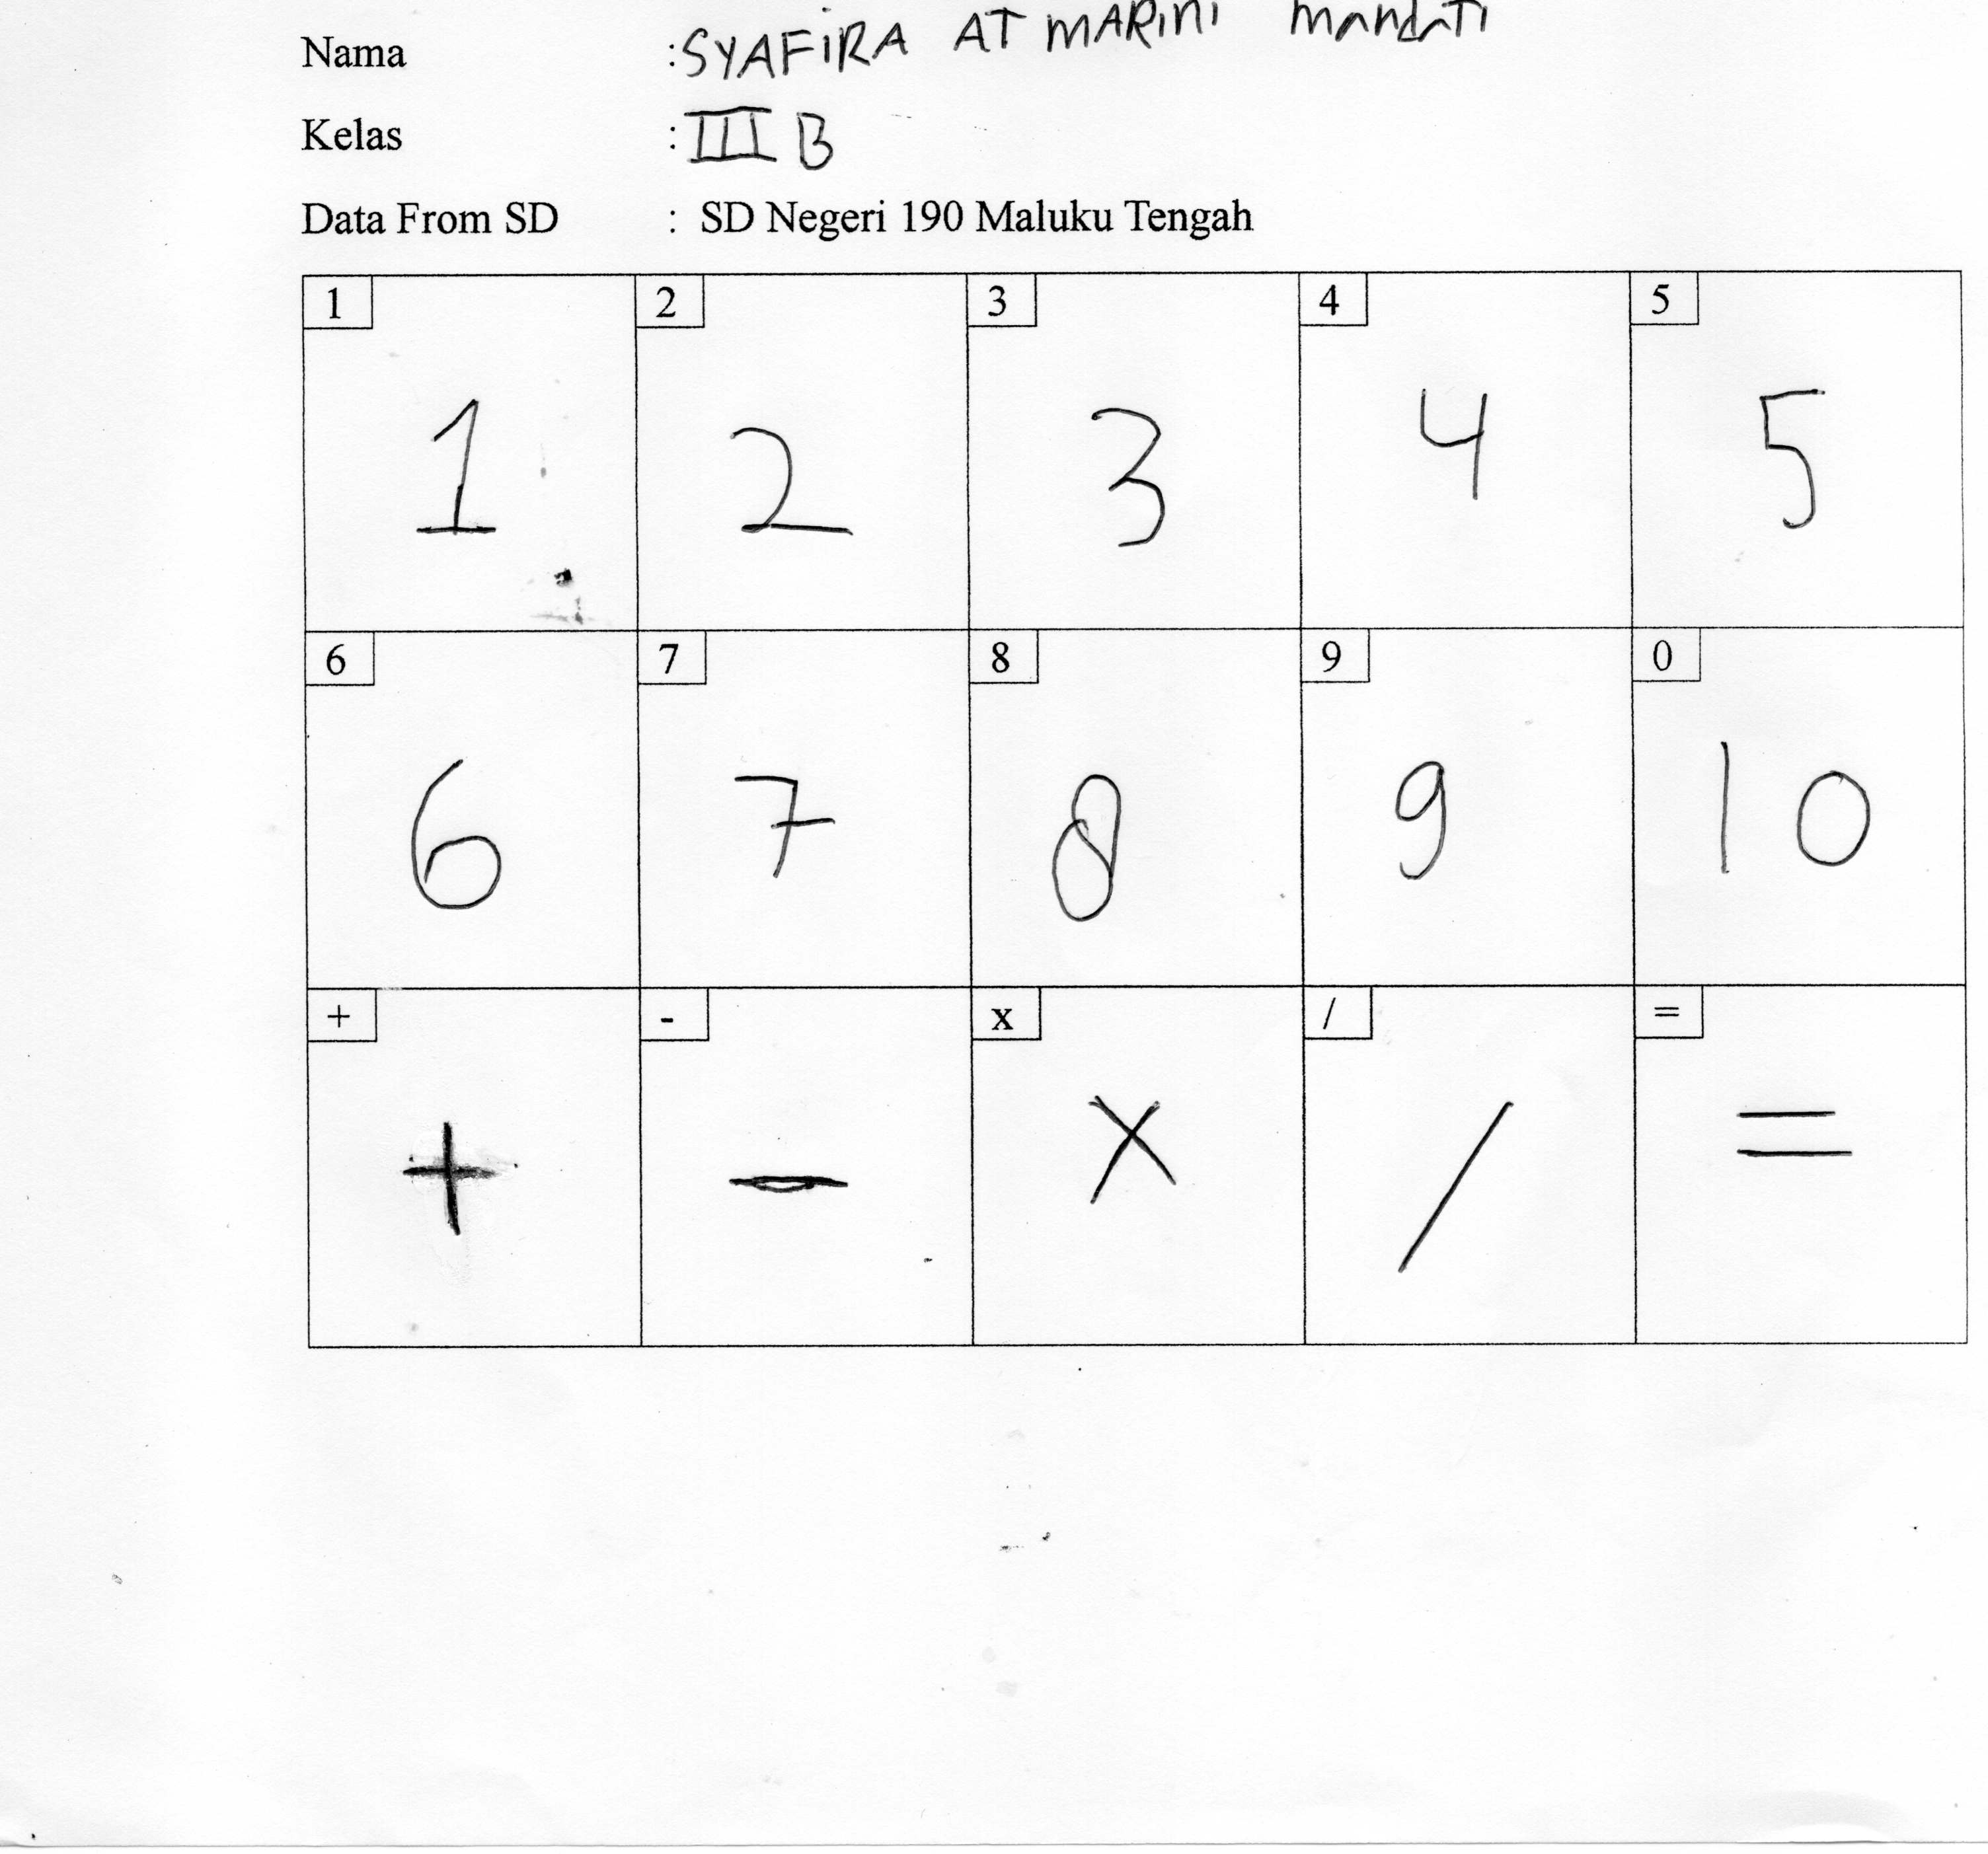 Nama : SYAFiRA AT MARini mandati
Kelas : III B
Data From SD : SD Negeri 190 Maluku Tengah
1 2 3 4 5
1 2 3 4 5
6 7 8 9 0
6 7 8 9 10
+ - x / =
+ - x / =